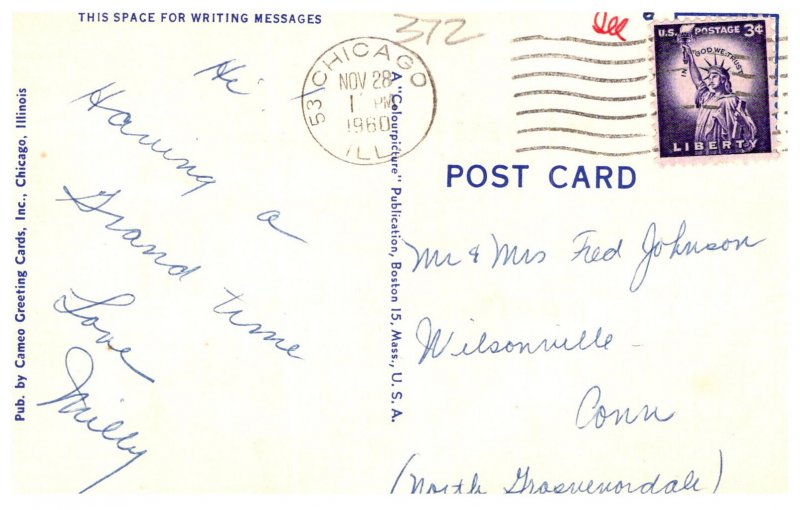 THIS SPACE FOR WRITING MESSAGES
372
CHICAGO
NOV 28
1 PM
1960
ILL
53
U.S. POSTAGE 3¢
IN GOD WE TRUST
LIBERTY
POST CARD
Hi
Having a
Grand time
Love
Milly
Pub. by Cameo Greeting Cards, Inc., Chicago, Illinois
A "Colourpicture" Publication, Boston 15, Mass., U. S. A.
Mr & Mrs Fred Johnson
Wilsonville -
Conn
(North Grosvenordale)